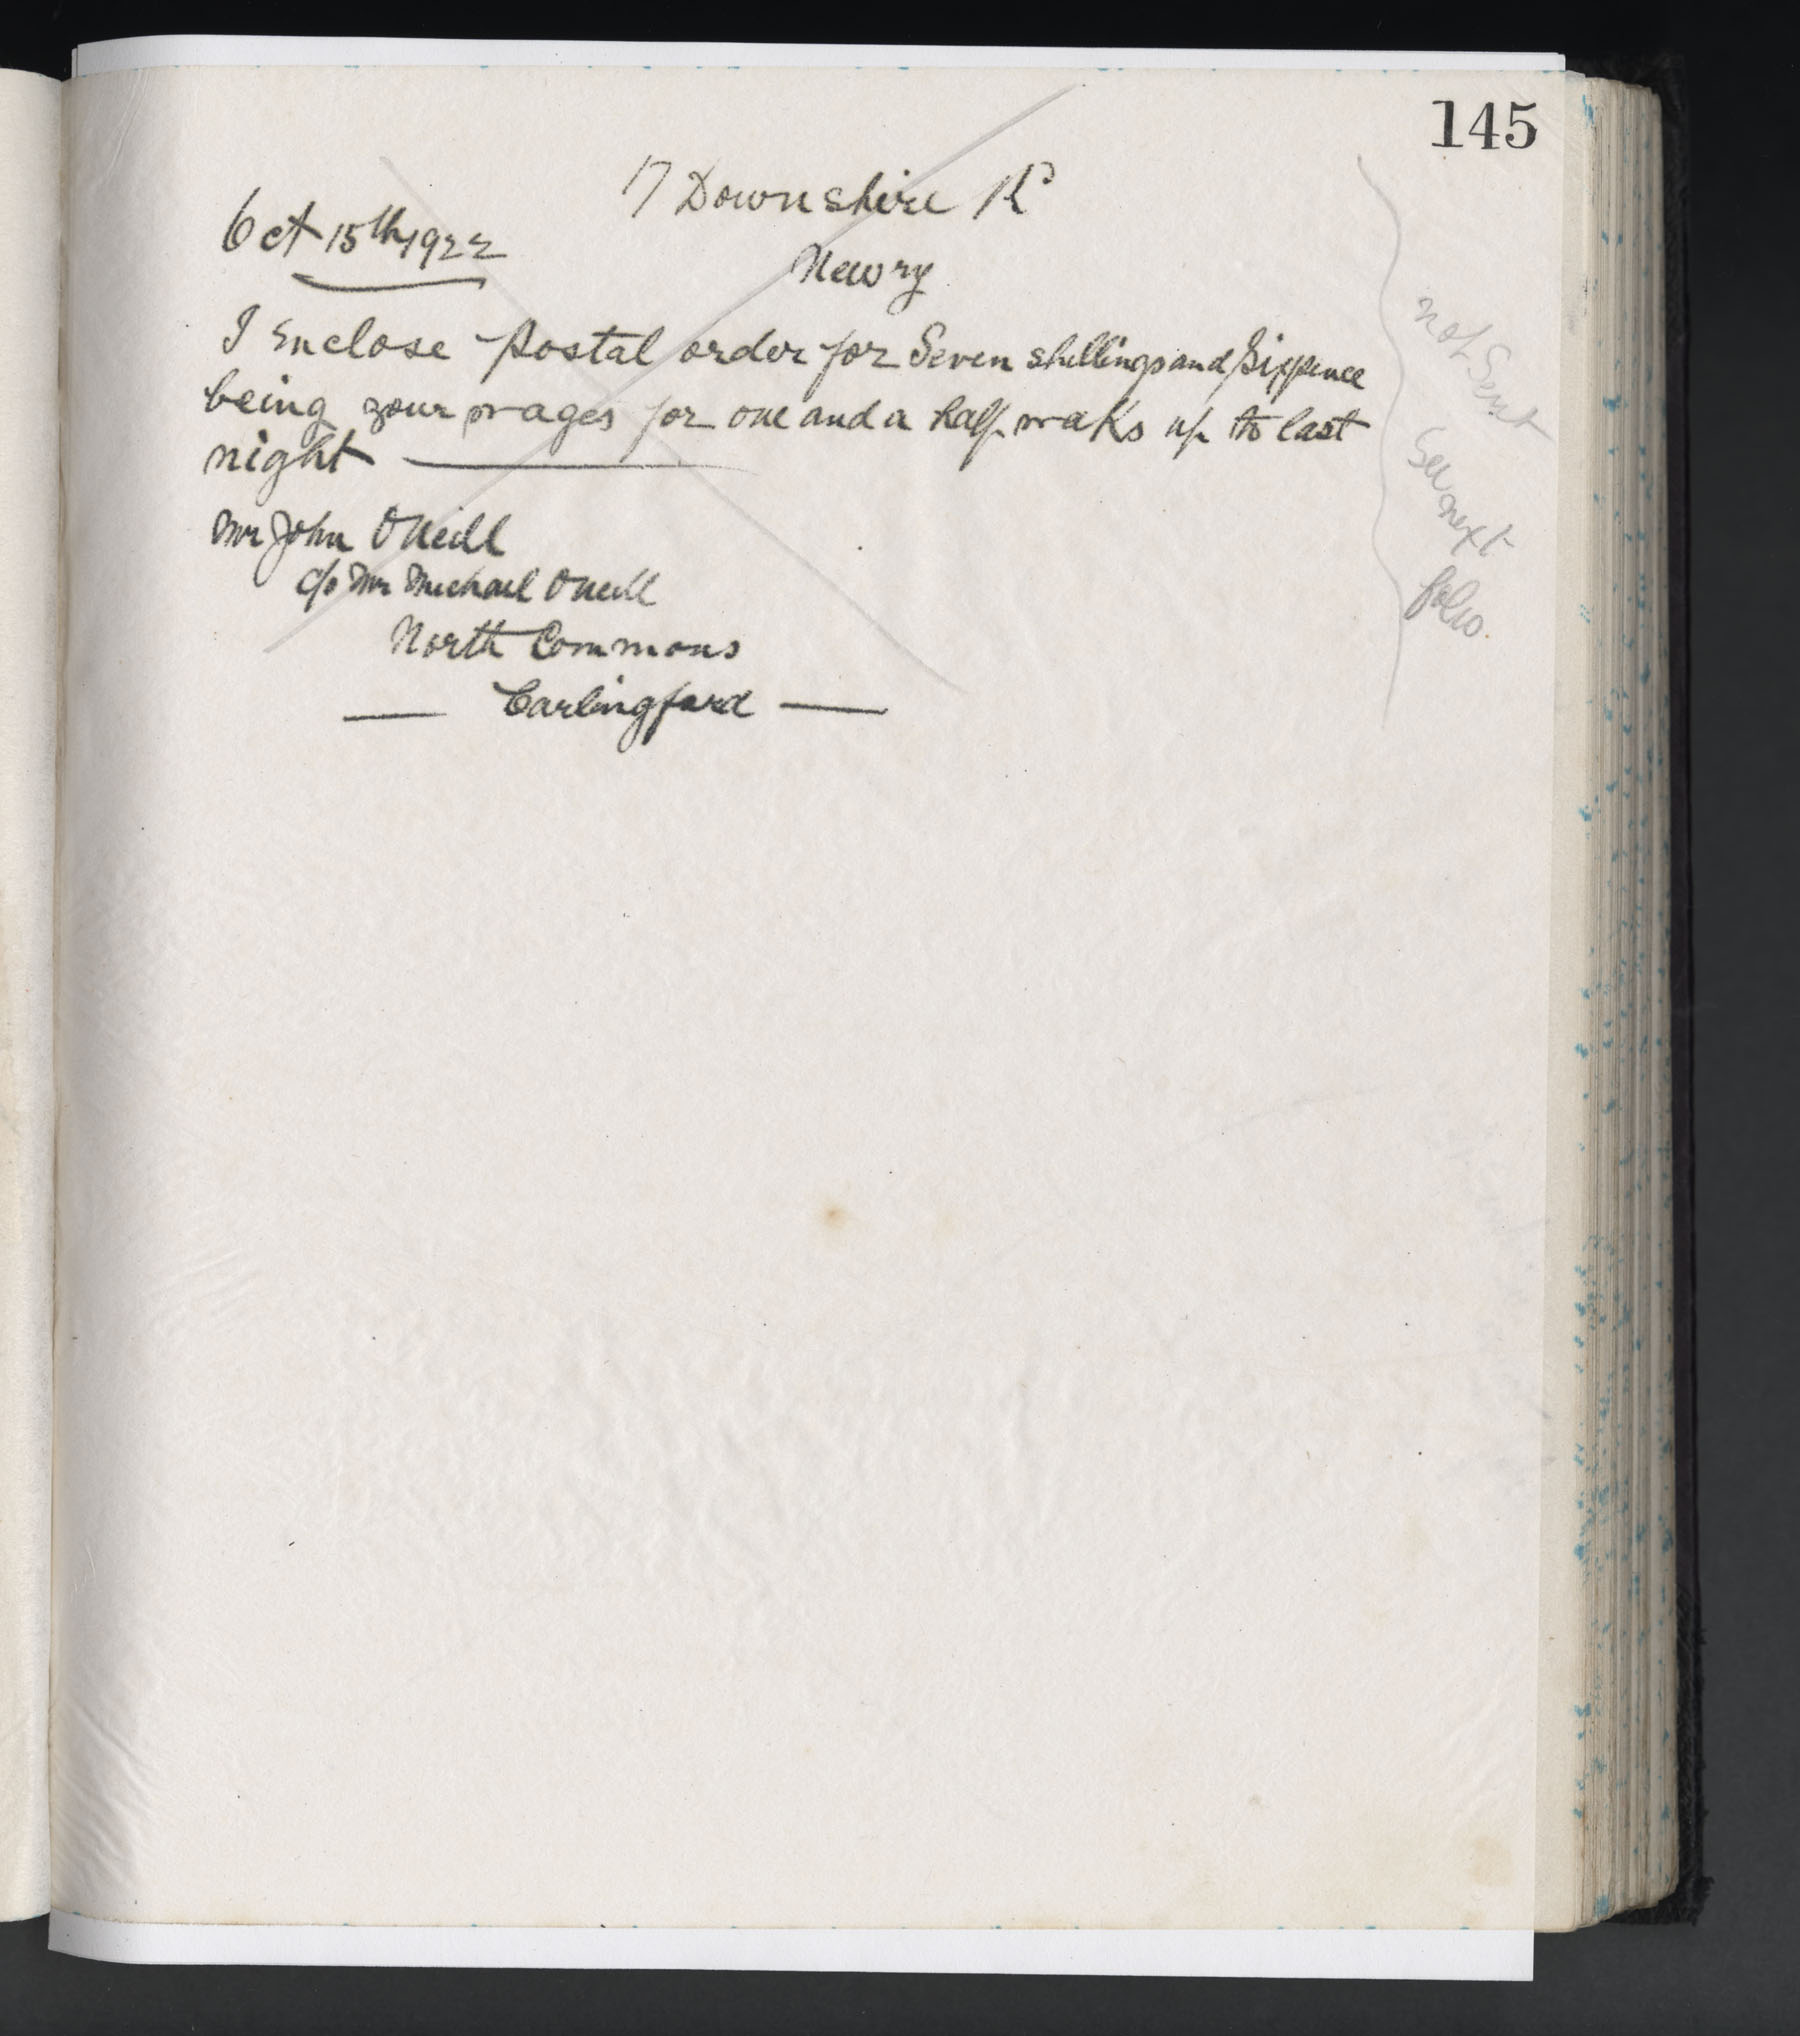 145
17 Downshire Rd
Oct 15th 1922
Newry
I Enclose Postal order for Seven shillings and Sixpence
being your wages for one and a half weeks up to last
night
Mr John ONeill
c/o Mr Michael ONeill
North Commons
Carlingford
not Sent
See next
folio.